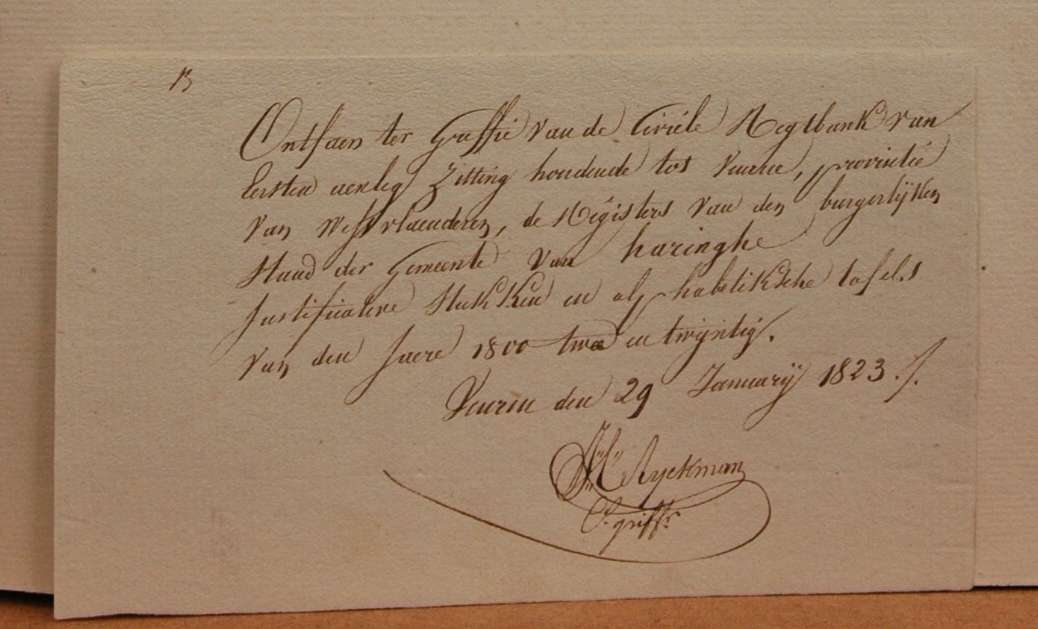 Ontfaen ter Griffie van de Civiéle Regtbank van
Eersten aenleg Zitting houdende tot Veurne, provintie
van Westvlaenderen, de Registers van den burgerlijken
staad der Gemeente van haringhe
justificative stukken en alphabetiksche tafels
van den jaere 1800 twee en twijntig.
Veurne den 29 January 1823 ./.
Ryckman
C. griffr